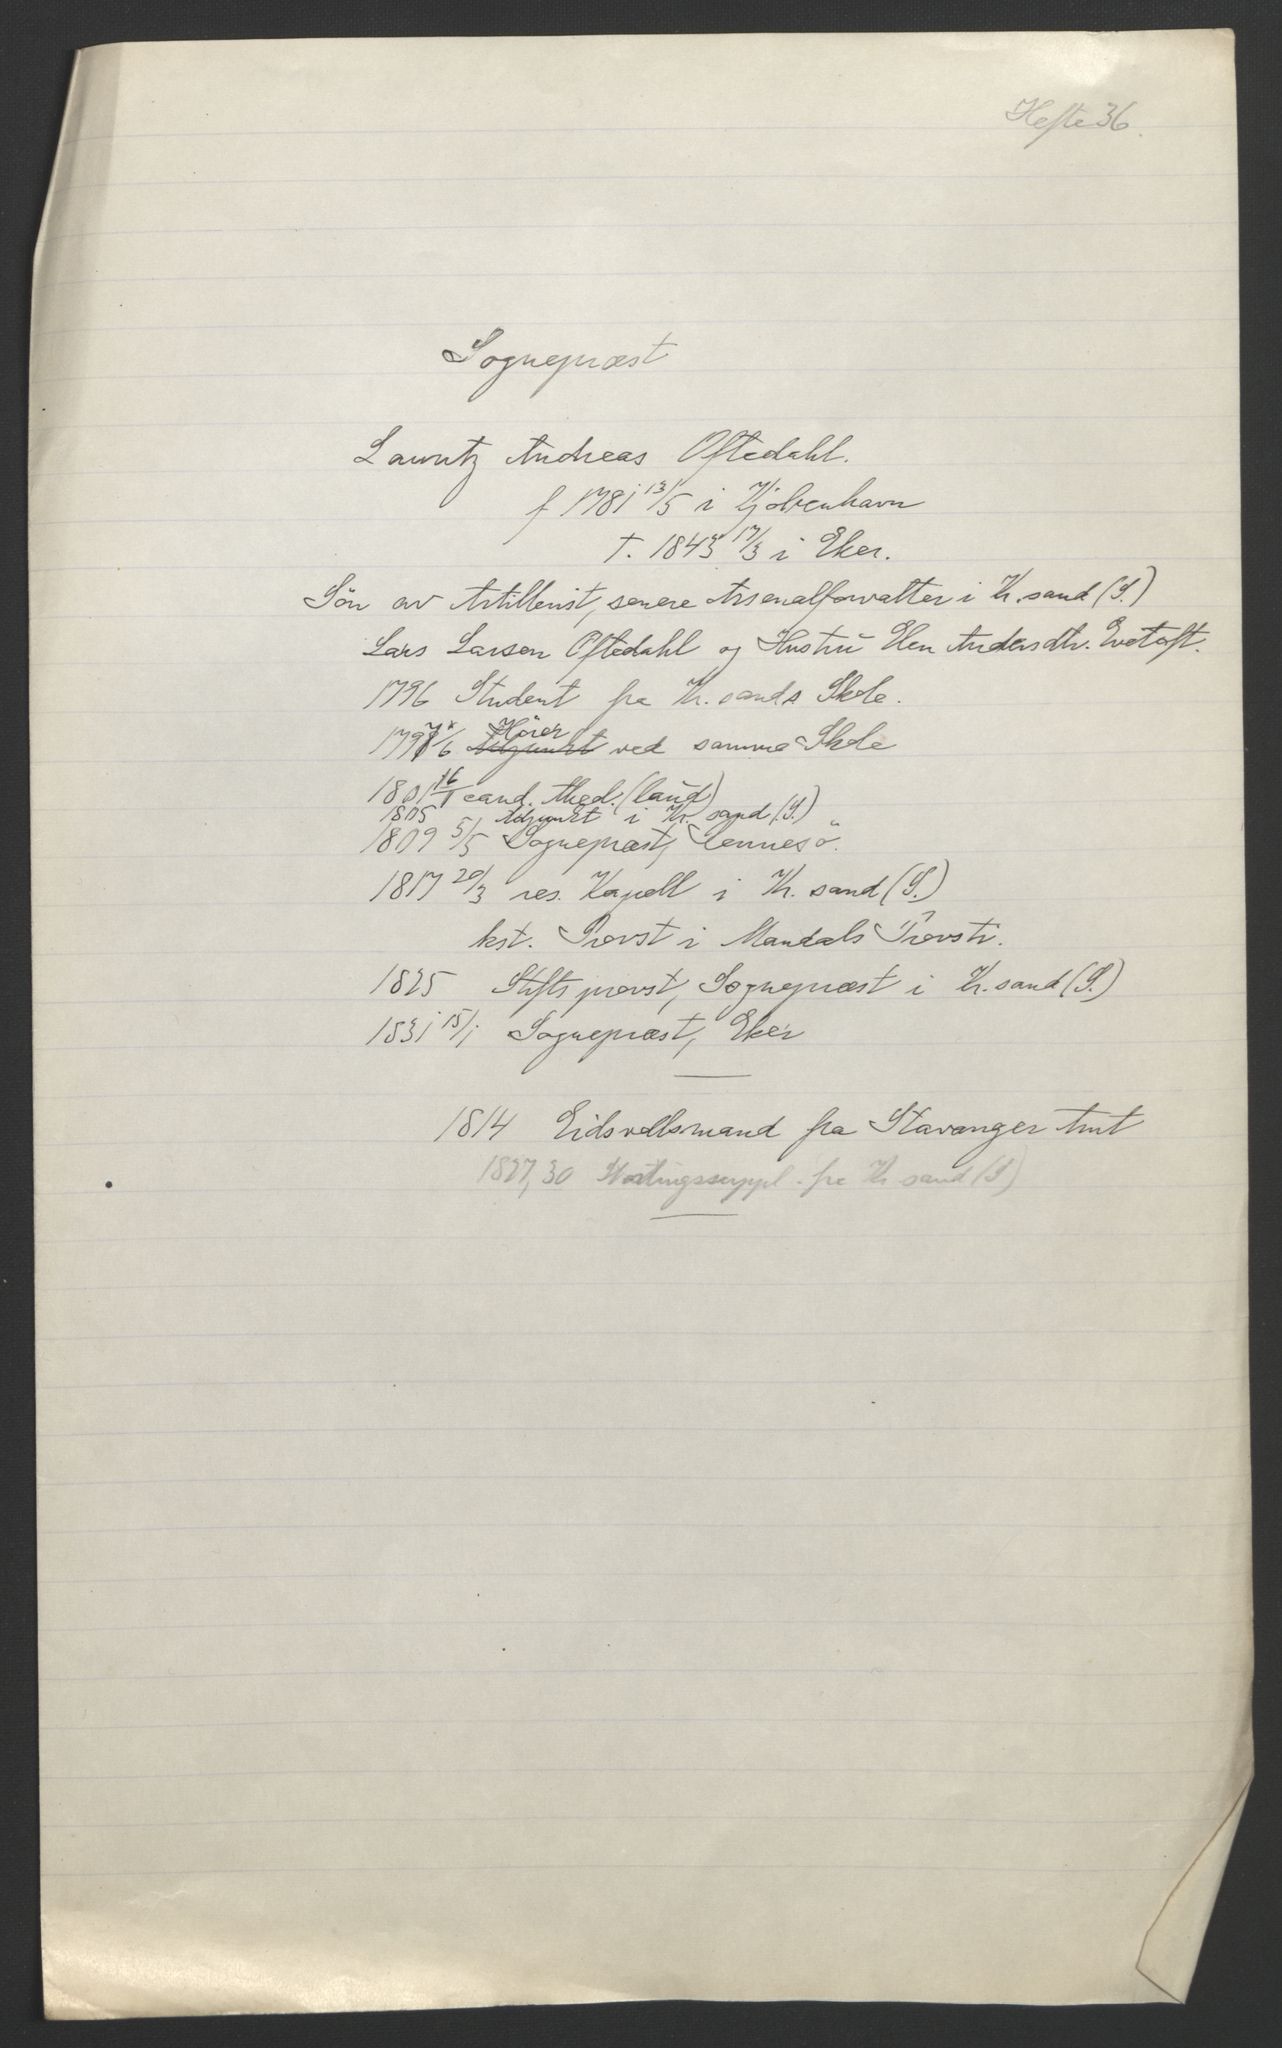 Hefte 36.
Sognepræst
Lauritz Andreas Oftedahl.
f 1781 13/5 i Kjøbenhavn
†. 1843 17/3 i Eker.
Søn av Artillerist, senere Arsenalforvalter i Kr.sand (S.)
Lars Larsen Oftedahl og Hustru Elen Andersdtr. Evetoft.
1796 Student fra Kr.sands Skole.
Hører
1797 /6 Adjunkt ved samme Skole
1801 16/1 cand. theol. (laud)
1805 Adjunkt i Kr.sand (S.)
1809 5/5 Sognepræst, Rennesø.
1817 20/3 res. Kapell i Kr.sand (S.)
kst. Provst i Mandals Provsti.
1825 Stiftsprovst, Sognepræst i Kr.sand (S.)
1831 15/1 Sognepræst, Eker
1814 Eidsvollsmand fra Stavanger Amt
1827, 30 Stortingssuppl. fra Kr sand (S)